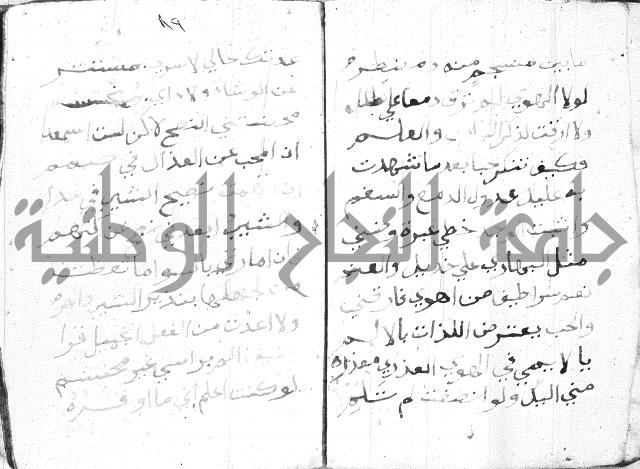 ما بين منسجم منه ومضطرم
لولا الهوي لم ترق دمعا علي طلل
ولا ارقت لذكر البان والعلم
فكيف تنكر حبا بعد ما شهدت
به عليك عدول الدمع والسقم
واثبت الوجد خطي عبرة وضني
مثل البهار علي خديك والعنم
نعم سرا طيف من اهوي فارقني
والحب يعترض اللذات بالالم
يا لايمي في الهوي العذري معذرة
مني اليك ولو انصفت لم تلم
٨٩
عدتك حالي لا سري بمستتر
عن الوشاة ولا دائي
محضتني النصح لاكن لست اسمعه
ان المحب عن العذال في صمم
اني اتهمت نصيح الشيب في عذل
والشيب ابعد في نصح عن التهم
فان امارتي بالسوء ما اتعظت
من جهلها بنذير الشيب والهرم
ولا اعدت من الفعل الجميل قرا
ضيف الم براسي غير محتشم
لو كنت اعلم اني ما اوقره
جامعة النجاح الوطنية